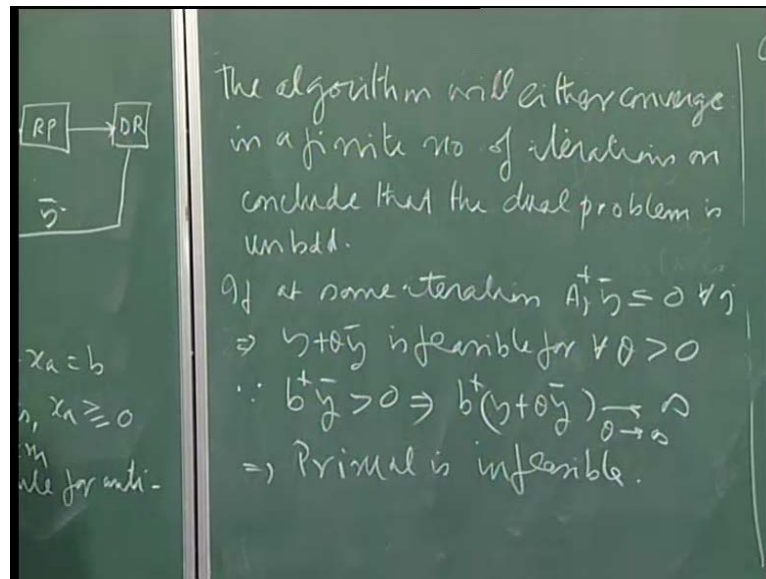 RP → DR
ȳ
xa = b
s, xa ≥ 0
m
ule for anti-
The algorithm will either converge
in a finite no of iterations or
conclude that the dual problem is
unbdd.
If at some iteration Aⱼᵗ ȳ ≤ 0 ∀ j
⇒ y+θȳ is feasible for ∀ θ > 0
∵ bᵗȳ > 0 ⇒ bᵗ(y+θȳ) → ∞
θ→∞
⇒ Primal is infeasible.